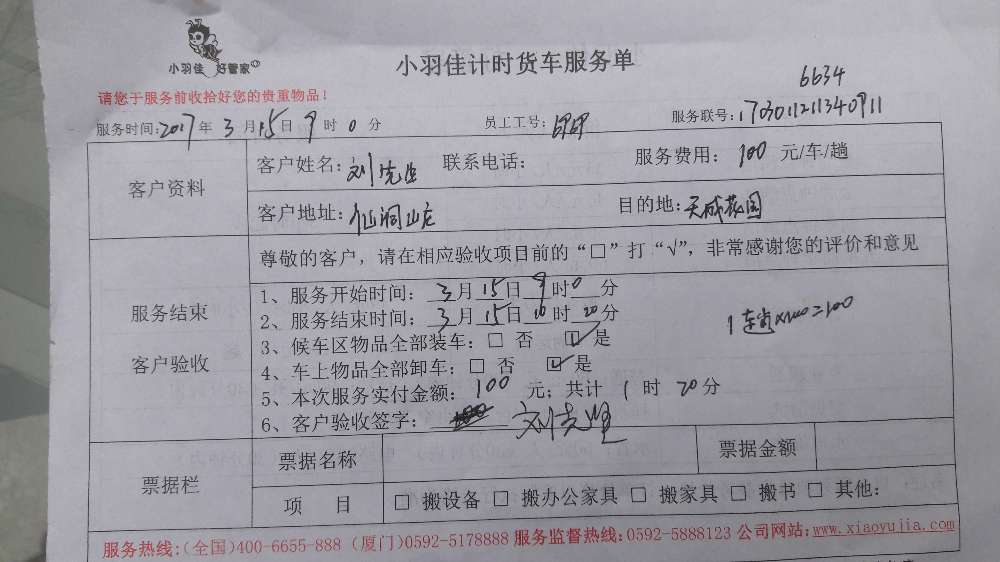 小羽佳 好管家
小羽佳计时货车服务单
6634
请您于服务前收拾好您的贵重物品！
服务时间:2017年 3 月 15 日 9 时 0 分 员工工号: 服务联号:1703011211340911
客户资料
客户姓名:刘先生 联系电话: 服务费用: 100 元/车/趟
客户地址:仙洞山庄 目的地:天成花园
服务结束
客户验收
尊敬的客户，请在相应验收项目前的“□”打“√”，非常感谢您的评价和意见
1、服务开始时间: 3 月 15 日 9 时 0 分
2、服务结束时间: 3 月 15 日 10 时 20 分
1趟×100=100
3、候车区物品全部装车:□ 否 ☑ 是
4、车上物品全部卸车:□ 否 ☑ 是
5、本次服务实付金额: 100 元; 共计 1 时 20 分
6、客户验收签字: 刘先生
票据栏
票据名称 票据金额
项 目 □ 搬设备 □ 搬办公家具 □ 搬家具 □ 搬书 □ 其他:
服务热线:(全国)400-6655-888 (厦门)0592-5178888 服务监督热线:0592-5888123 公司网站:www.xiaoyujia.com